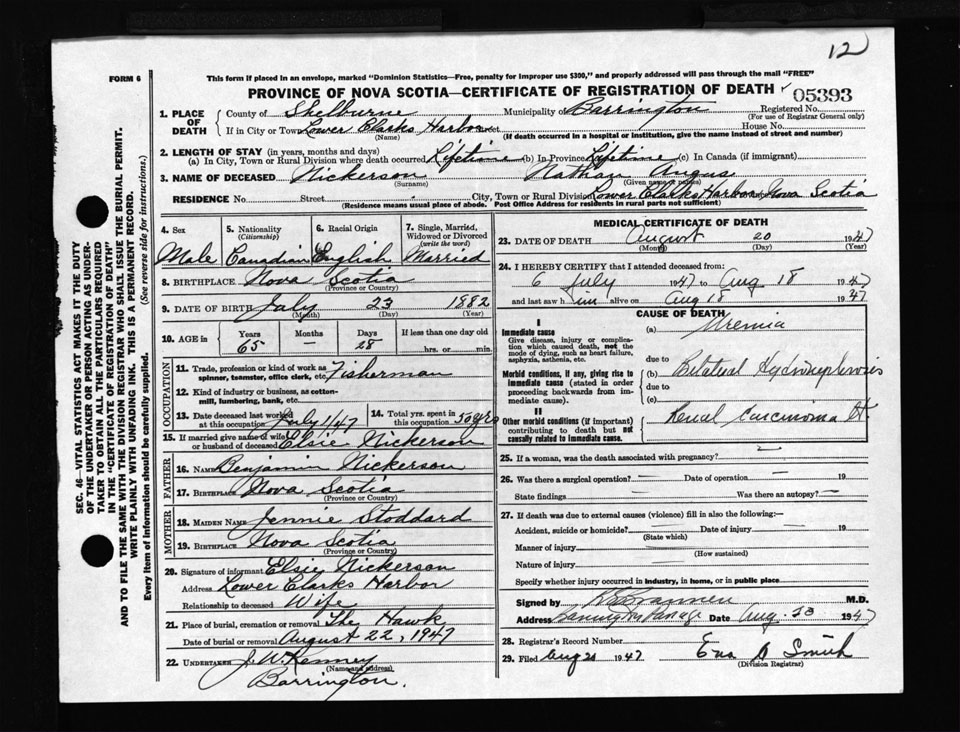 12
FORM 6
This form if placed in an envelope, marked "Dominion Statistics—Free, penalty for improper use $300," and properly addressed will pass through the mail "FREE"
PROVINCE OF NOVA SCOTIA—CERTIFICATE OF REGISTRATION OF DEATH 05393
SEC. 46—VITAL STATISTICS ACT MAKES IT THE DUTY
OF THE UNDERTAKER OR PERSON ACTING AS UNDER-
TAKER TO OBTAIN ALL THE PARTICULARS REQUIRED
IN THE "CERTIFICATE OF REGISTRATION OF DEATH"
AND TO FILE THE SAME WITH THE DIVISION REGISTRAR WHO SHALL ISSUE THE BURIAL PERMIT.
WRITE PLAINLY WITH UNFADING INK. THIS IS A PERMANENT RECORD.
Every item of information should be carefully supplied. (See reverse side for instructions.)
1. PLACE OF DEATH
County of Shelburne Municipality of Barrington Registered No.
(For use of Registrar General only)
If in City or Town Lower Clarks Harbor House No.
(Name) (If death occurred in a hospital or institution, give the name instead of street and number)
2. LENGTH OF STAY (in years, months and days)
(a) In City, Town or Rural Division where death occurred Lifetime (b) In Province Lifetime (c) In Canada (if immigrant)
3. NAME OF DECEASED Nickerson Nathan Angus
(Surname) (Given name or names)
RESIDENCE No. Street City, Town or Rural Division Lower Clarks Harbor Nova Scotia
(Residence means usual place of abode. Post Office Address for residents in rural parts not sufficient)
4. Sex 5. Nationality 6. Racial Origin 7. Single, Married,
(Citizenship) Widowed or Divorced
(write the word)
Male Canadian English Married
8. BIRTHPLACE Nova Scotia
(Province or Country)
9. DATE OF BIRTH July 23 1882
(Month) (Day) (Year)
10. AGE in Years Months Days If less than one day old
65 — 28 hrs. or min.
OCCUPATION
11. Trade, profession or kind of work as
spinner, teamster, office clerk, etc. Fisherman
12. Kind of industry or business, as cotton-
mill, lumbering, bank, etc.
13. Date deceased last worked
at this occupation July 1/47
14. Total yrs. spent in
this occupation 50 yrs
15. If married give name of wife
or husband of deceased Elsie Nickerson
FATHER
16. NAME Benjamin Nickerson
17. Birthplace Nova Scotia
(Province or Country)
MOTHER
18. MAIDEN NAME Jennie Stoddard
19. BIRTHPLACE Nova Scotia
(Province or Country)
20. Signature of informant Elsie Nickerson
Address Lower Clarks Harbor
Relationship to deceased Wife
21. Place of burial, cremation or removal The Hawk
Date of burial or removal August 22, 1947
22. UNDERTAKER J. W. Kenney
(Name and address)
Barrington.
MEDICAL CERTIFICATE OF DEATH
23. DATE OF DEATH August 20 1947
(Month) (Day) (Year)
24. I HEREBY CERTIFY that I attended deceased from:
6 July 1947 to Aug 18 1947
and last saw him alive on Aug 18 1947
CAUSE OF DEATH
I
Immediate cause
Give disease, injury or complica-
tion which caused death, not the
mode of dying, such as heart failure,
asphyxia, asthenia, etc.
(a) Uremia
due to
Morbid conditions, if any, giving rise to
immediate cause (stated in order
proceeding backwards from im-
mediate cause).
(b) Bilateral Hydronephrosis
due to
(c)
II
Other morbid conditions (if important)
contributing to death but not
causally related to immediate cause.
Renal Carcinoma
25. If a woman, was the death associated with pregnancy?
26. Was there a surgical operation? — Date of operation — 19
State findings Was there an autopsy? —
27. If death was due to external causes (violence) fill in also the following:—
Accident, suicide or homicide? Date of injury 19
(State which)
Manner of injury
(How sustained)
Nature of injury
Specify whether injury occurred in industry, in home, or in public place
Signed by M.D.
Address Barrington Passage Date Aug. 1947
28. Registrar's Record Number
29. Filed Aug 1947 Eva D Smith
(Division Registrar)